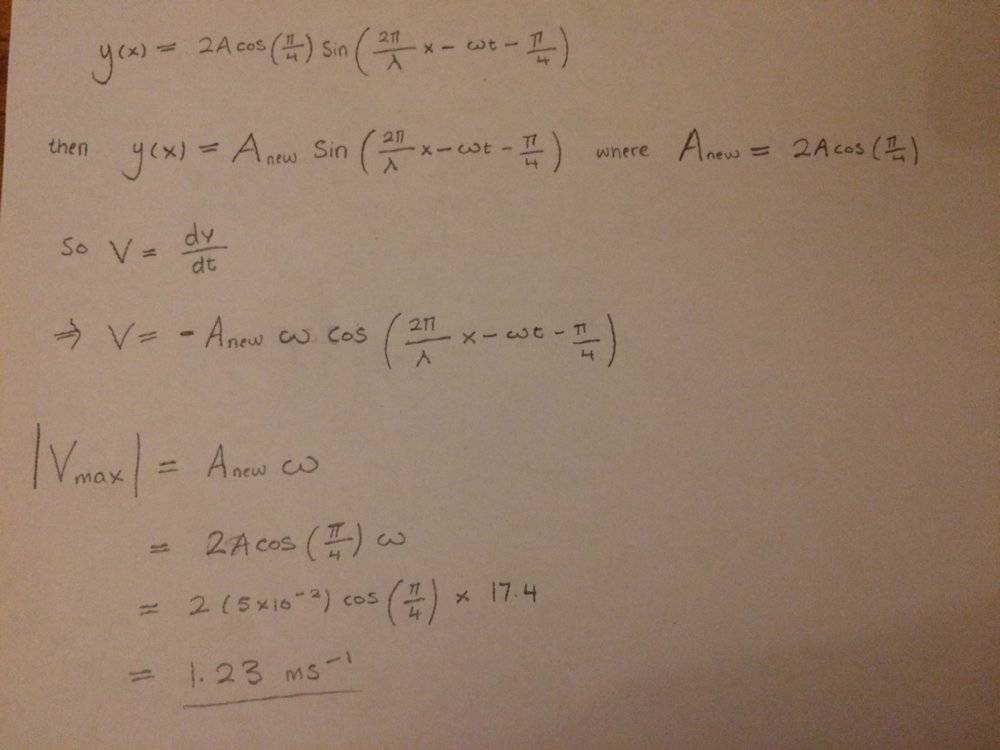 y(x) = 2A cos(π/4) Sin(2π/λ x - ωt - π/4)
then y(x) = A_new Sin(2π/λ x - ωt - π/4) where A_new = 2A cos(π/4)
So V = dy/dt
⇒ V = - A_new ω cos(2π/λ x - ωt - π/4)
|V_max| = A_new ω
= 2A cos(π/4) ω
= 2 (5×10⁻²) cos(π/4) × 17.4
= 1.23 ms⁻¹